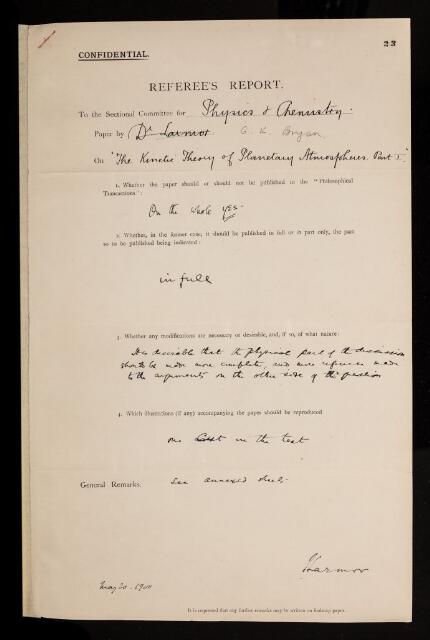 23
CONFIDENTIAL.
REFEREE'S REPORT.
To the Sectional Committee for Physics & Chemistry.
Paper by Dr Larmor. G. H. Bryan
On "The Kinetic Theory of Planetary Atmospheres. Part I."
1. Whether the paper should or should not be published in the "Philosophical
Transactions":
On the whole yes.
2. Whether, in the former case, it should be published in full or in part only, the part
so to be published being indicated:
in full
3. Whether any modifications are necessary or desirable, and, if so, of what nature:
It is desirable that the physical part of the discussion
should be made more complete, and more reference made
to the arguments on the other side of the question
4. Which illustrations (if any) accompanying the paper should be reproduced
one in the text
General Remarks. See annexed sheet.
J Larmor
May 20. 1900
It is requested that any further remarks may be written on foolscap paper.